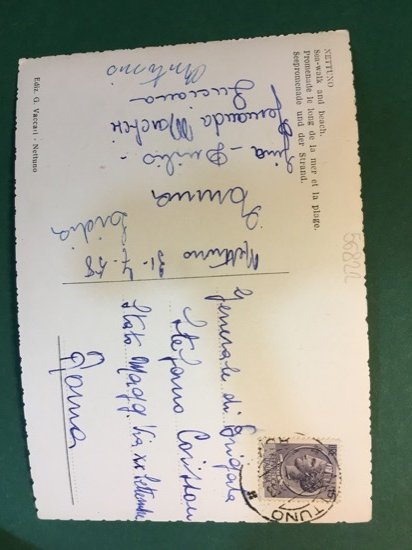 NETTUNO
Sea-walk and beach.
Promenade le long de la mer et la plage.
Seepromenade und der Strand.
56822
Antonio
Luciana
Fernanda Marchi
Lina - Duilio -
Emma
Lidia
Nettuno 31-7-58
Generale di Brigata
Stefano
Stato Magg. Via XX Settembre
Roma
Ediz. G. Vaccari - Nettuno